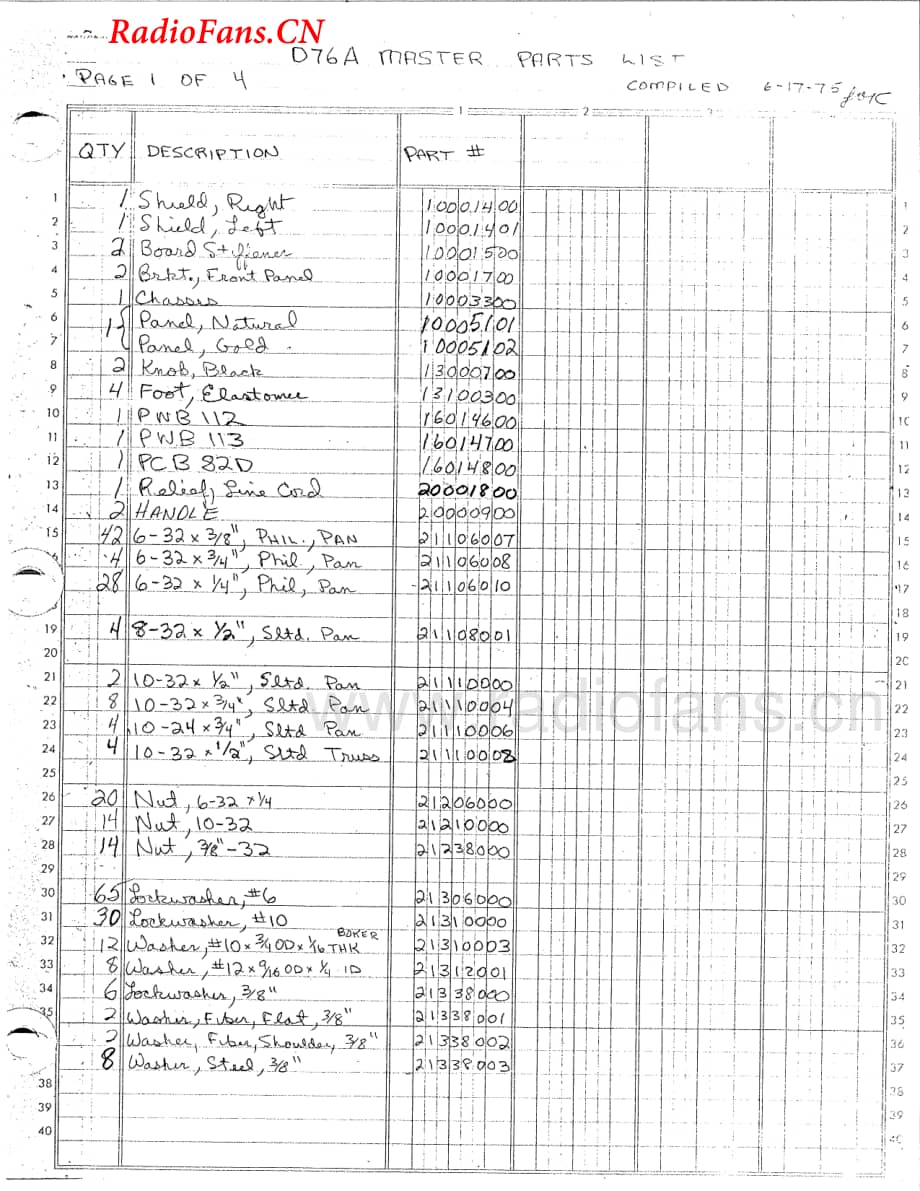 RadioFans.CN
D76A MASTER PARTS LIST
PAGE 1 OF 4
COMPILED 6-17-75
1 2 3
QTY DESCRIPTION PART #
1 1 Shield, Right 10001400 1
2 1 Shield, Left 10001401 2
3 2 Board Stiffener 10001500 3
4 2 Brkt., Front Panel 10001700 4
5 1 Chassis 10003300 5
6 1 { Panel, Natural 10005101 6
7 Panel, Gold 10005102 7
8 2 Knob, Black 13000700 8
9 4 Foot, Elastomer 13100300 9
10 1 PWB 112 16014600 10
11 1 PWB 113 16014700 11
12 1 PCB 82D 16014800 12
13 1 Relief, Line Cord 20001800 13
14 2 HANDLE 20000900 14
15 42 6-32 x 3/8", PHIL., PAN 21106007 15
4 6-32 x 3/4", Phil., Pan 21106008 16
28 6-32 x 1/4", Phil, Pan 21106010 17
18
19 4 8-32 x 1/2", Sltd. Pan 21108001 19
20 20
21 2 10-32 x 1/2", Sltd. Pan 21110000 21
22 8 10-32 x 3/4", Sltd Pan 21110004 22
23 4 10-24 x 3/4", Sltd Pan 21110006 23
24 4 10-32 x 1/2", Sltd Truss 21110008 24
www.radiofans.cn
25 25
26 20 Nut, 6-32 x 1/4 21206000 26
27 14 Nut, 10-32 21210000 27
28 14 Nut, 3/8"-32 21238000 28
29 29
30 65 Lockwasher, #6 21306000 30
31 30 Lockwasher, #10 21310000 31
BOKER
32 12 Washer, #10 x 3/4 OD x 1/16 THK 21310003 32
33 8 Washer, #12 x 9/16 OD x 1/4 ID 21312001 33
34 6 Lockwasher, 3/8" 21338000 34
35 2 Washer, Fiber, Flat, 3/8" 21338001 35
2 Washer, Fiber, Shoulder, 3/8" 21338002 36
8 Washer, Steel, 3/8" 21338003 37
38 38
39 39
40 40